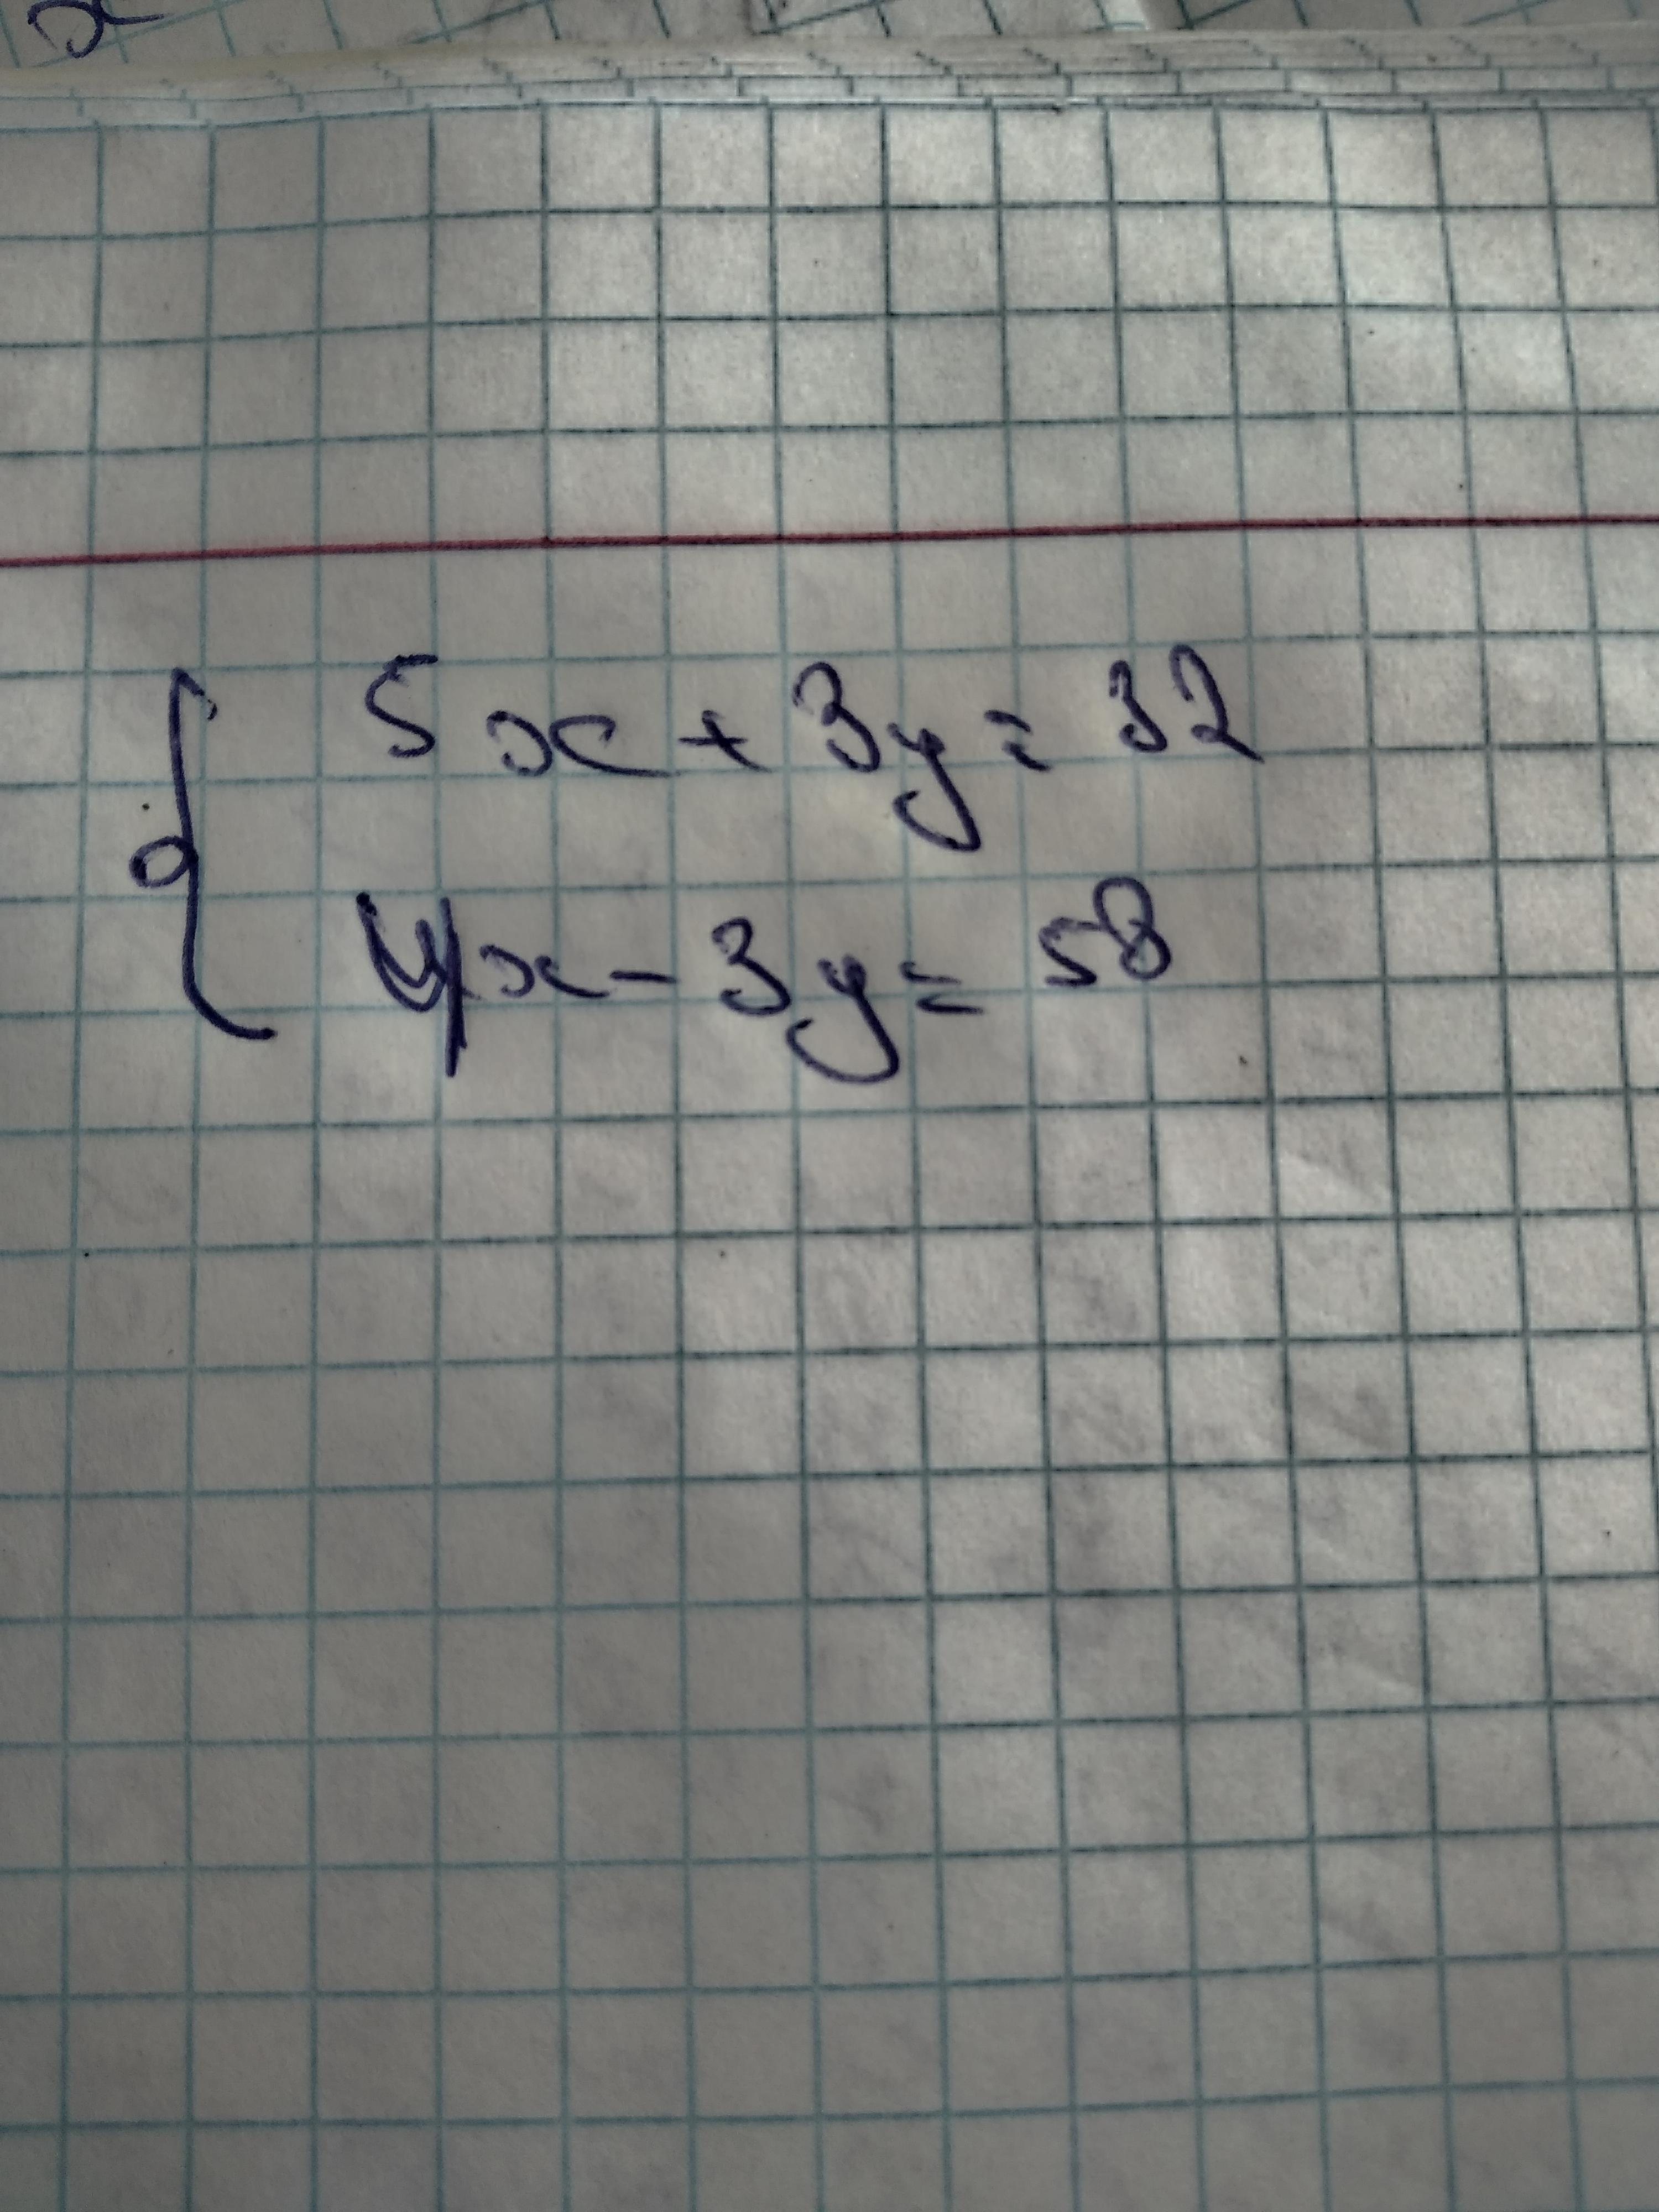 5x + 3y = 32
4x - 3y = 58